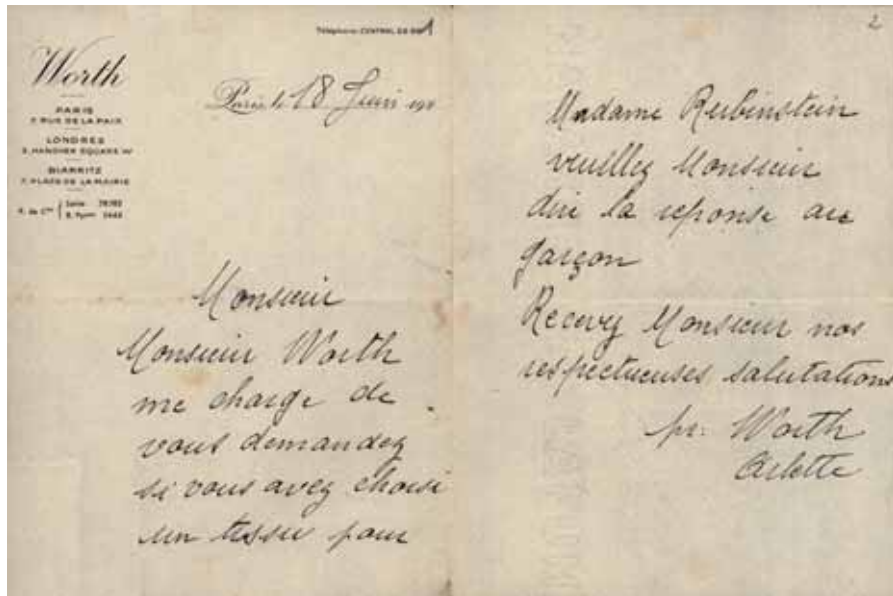 Worth
PARIS
7. RUE DE LA PAIX
LONDRES
3. HANOVER SQUARE W
BIARRITZ
7. PLACE DE LA MAIRIE
R. de Cce
Seine
B. Pyren
Téléphone: CENTRAL
Paris, le 18 Juin 191
Monsieur
Monsieur Worth
me charge de
vous demandez
si vous avez choisi
un tissu pour
2
Madame Rubinstein
veuillez Monsieur
dire la reponse au
garçon
Recevez Monsieur nos
respectueuses salutations
pr. Worth
Arlette